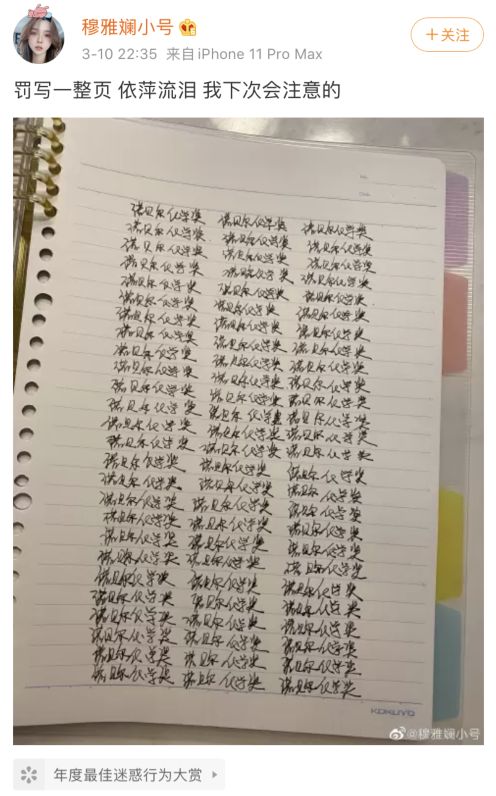 穆雅斓小号
3-10 22:35 来自 iPhone 11 Pro Max
+关注
罚写一整页 依萍流泪 我下次会注意的
诺贝尔化学奖 诺贝尔化学奖 诺贝尔化学奖
诺贝尔化学奖 诺贝尔化学奖 诺贝尔化学奖
诺贝尔化学奖 诺贝尔化学奖 诺贝尔化学奖
诺贝尔化学奖 诺贝尔化学奖 诺贝尔化学奖
诺贝尔化学奖 诺贝尔化学奖 诺贝尔化学奖
诺贝尔化学奖 诺贝尔化学奖 诺贝尔化学奖
诺贝尔化学奖 诺贝尔化学奖 诺贝尔化学奖
诺贝尔化学奖 诺贝尔化学奖 诺贝尔化学奖
诺贝尔化学奖 诺贝尔化学奖 诺贝尔化学奖
诺贝尔化学奖 诺贝尔化学奖 诺贝尔化学奖
诺贝尔化学奖 诺贝尔化学奖 诺贝尔化学奖
诺贝尔化学奖 诺贝尔化学奖 诺贝尔化学奖
诺贝尔化学奖 诺贝尔化学奖 诺贝尔化学奖
诺贝尔化学奖 诺贝尔化学奖 诺贝尔化学奖
诺贝尔化学奖 诺贝尔化学奖 诺贝尔化学奖
诺贝尔化学奖 诺贝尔化学奖 诺贝尔化学奖
诺贝尔化学奖 诺贝尔化学奖 诺贝尔化学奖
诺贝尔化学奖 诺贝尔化学奖 诺贝尔化学奖
诺贝尔化学奖 诺贝尔化学奖 诺贝尔化学奖
诺贝尔化学奖 诺贝尔化学奖 诺贝尔化学奖
诺贝尔化学奖 诺贝尔化学奖 诺贝尔化学奖
诺贝尔化学奖 诺贝尔化学奖 诺贝尔化学奖
诺贝尔化学奖 诺贝尔化学奖 诺贝尔化学奖
诺贝尔化学奖 诺贝尔化学奖 诺贝尔化学奖
诺贝尔化学奖 诺贝尔化学奖 诺贝尔化学奖
诺贝尔化学奖 诺贝尔化学奖 诺贝尔化学奖
KOKUYO
@穆雅斓小号
年度最佳迷惑行为大赏